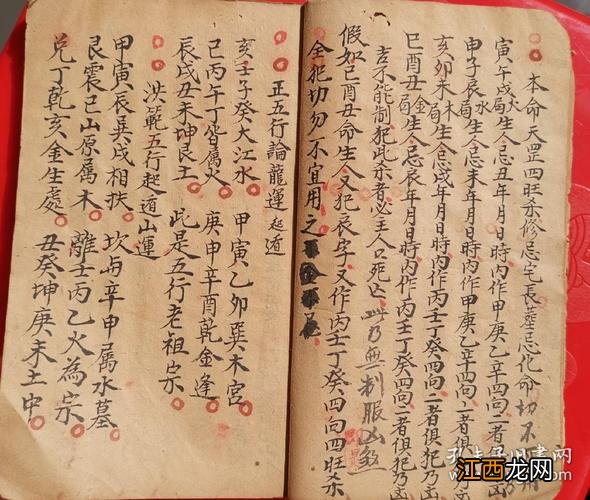 本命天罡四旺杀修忌宅長葬忌化命切不
寅午戌火局生人忌丑年月日時内作甲庚乙辛四向二者
申子辰水局生人忌未年月日時内作甲庚乙辛四向二者俱犯乃
亥卯未木局生人忌戌年月日時内作丙壬丁癸四向二者俱犯乃
巳酉丑金局生人忌辰年月日時内作丙壬丁癸四向二者俱犯乃凶
吉不能制犯此杀者必主人口死亡此乃無制服凶煞
假如巳酉丑命生人又犯辰字又作丙壬丁癸四向四旺杀
全犯切勿不宜用之
正五行論龍運起遁
亥壬子癸大江水 甲寅乙卯巽木宮
巳丙午丁皆属火 庚申辛酉乾金逢
辰戌丑未坤艮土 此是五行老祖宗
洪範五行起遁山運
甲寅辰巽戌相扶 坎与辛申属水墓
艮震巳山原属木 離壬丙乙火為宗
兑丁乾亥金生處 丑癸坤庚未土中
孔夫子旧書网
江西龙网